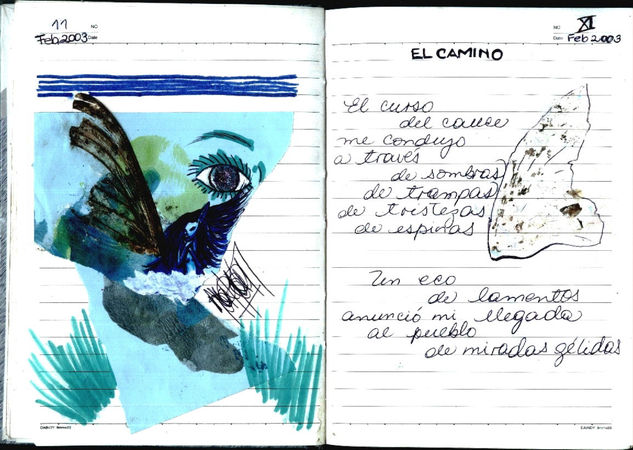 11
NO
Feb 2003 Date
XI
NO
Date Feb 2003
EL CAMINO
El curso
del cauce
me condujo
a través
de sombras
de trampas
de tristezas
de espinas
Un eco
de lamentos
anunció mi llegada
al pueblo
de miradas gélidas